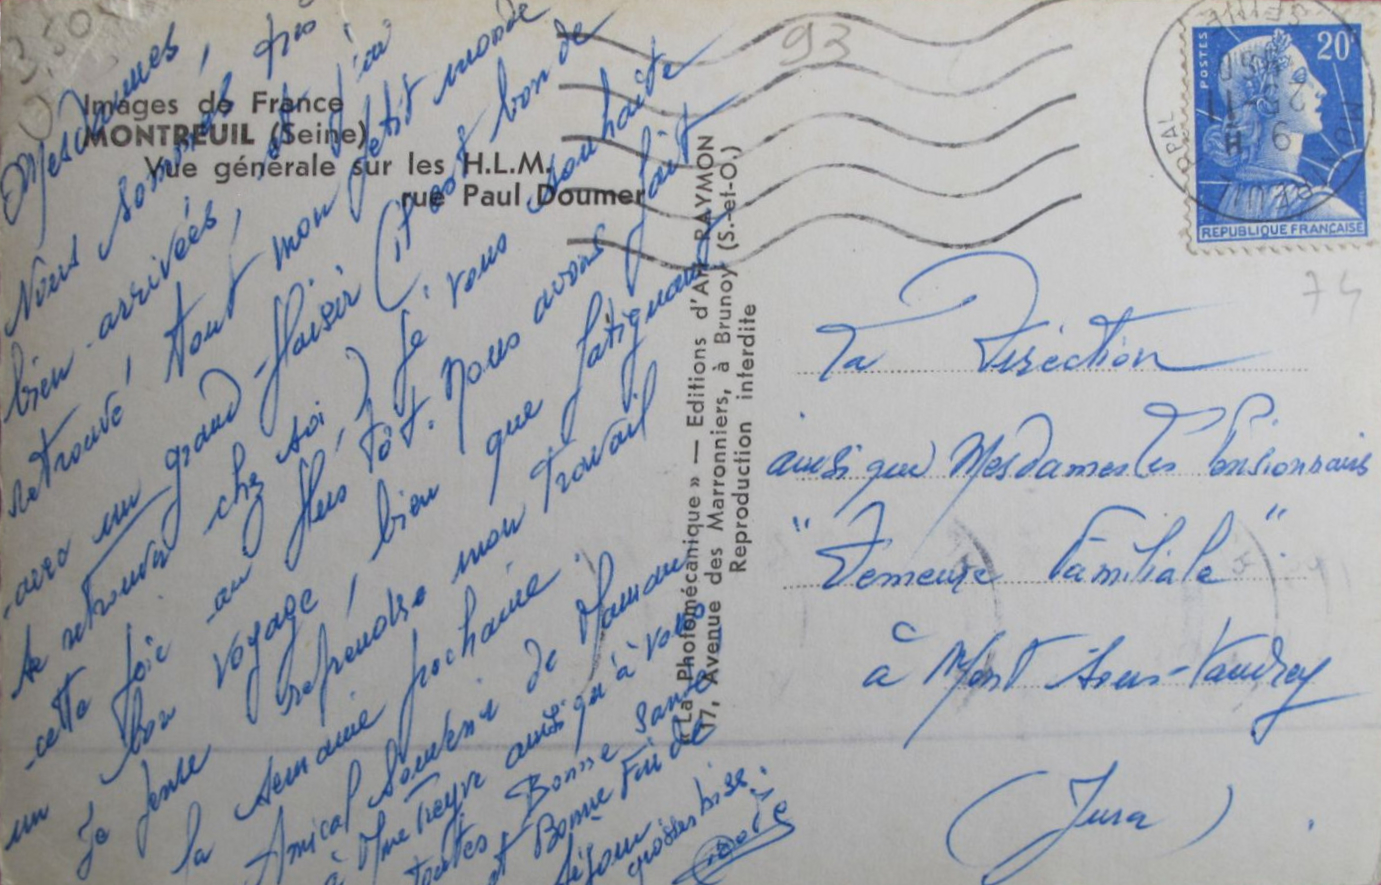 3,50
Images de France
MONTREUIL (Seine)
Vue générale sur les H.L.M.
rue Paul Doumer
Mesdames,
Nous sommes très
bien arrivées, et j'ai
retrouvé, tout mon petit monde
avec un grand plaisir (il est bon de
se retrouver chez soi,) je vous souhaite
cette fois au plus tôt. Nous avons fait
un bon voyage, bien que fatiguant
Je pense reprendre mon travail
la semaine prochaine.
Amical Souvenir de Maman
à Mme ainsi qu'à vous
toutes Bonne Santé
et Bonne Fin de
séjour.
grosses bises.
« La Photomécanique » — Editions d'Art RAYMON
17, Avenue des Marronniers, à Brunoy (S.-et-O.)
Reproduction interdite
93
POSTES
20F
REPUBLIQUE FRANÇAISE
74
La Direction
ainsi que Mesdames les Pensionnaires
"Demeure Familiale"
à Mont Sous-Vaudrey
(Jura).